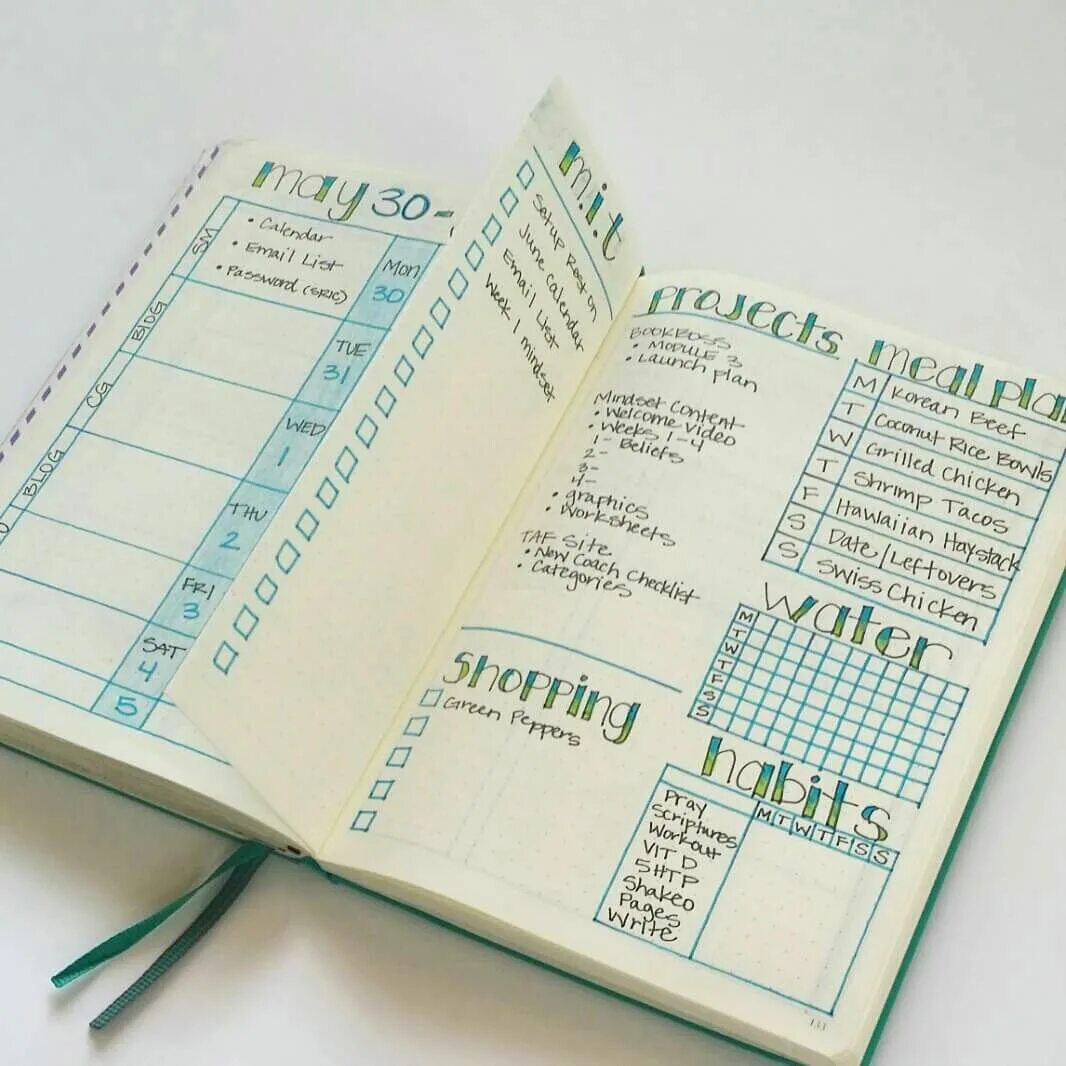 may 30 -
SM
• Calendar
• Email List
• Password (SRIC)
BLDG
CG
BLOG
Mon
30
TUE
31
WED
1
THU
2
FRI
3
SAT
4
5
m.i.t
Setup Post on
June Calendar
Email List
Week 1 mindset
projects
BOOKBOSS
• MODULE 3
• Launch plan
Mindset Content
• Welcome Video
• Weeks 1-4
1- Beliefs
2-
3-
4-
• graphics
• Worksheets
TAF Site
• New Coach Checklist
• Categories
shopping
Green Peppers
meal pla
M Korean Beef
T Coconut Rice Bowls
W Grilled Chicken
T Shrimp Tacos
F Hawaiian Haystack
S Date/Leftovers
S Swiss Chicken
water
M
T
W
T
F
S
S
habits
M T W T F S S
Pray
Scriptures
Workout
VIT D
5HTP
Shakeo
Pages
Write
131